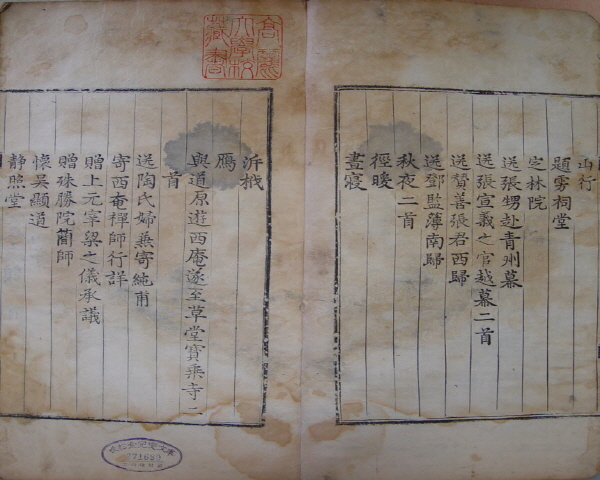 山行
題雱祠堂
定林院
送張甥赴青州幕
送張宣義之官越幕二首
送贊善張君西歸
送鄧監薄南歸
秋夜二首
徑暖
晝寢
沂栰
鴈
與道原遊西庵遂至草堂寶乘寺二
首
送陶氏婦兼寄純甫
寄西庵禪師行詳
贈上元宰梁之儀承議
贈殊勝院簡師
懷吳顯道
靜照堂
高麗
大學校
藏書
271683